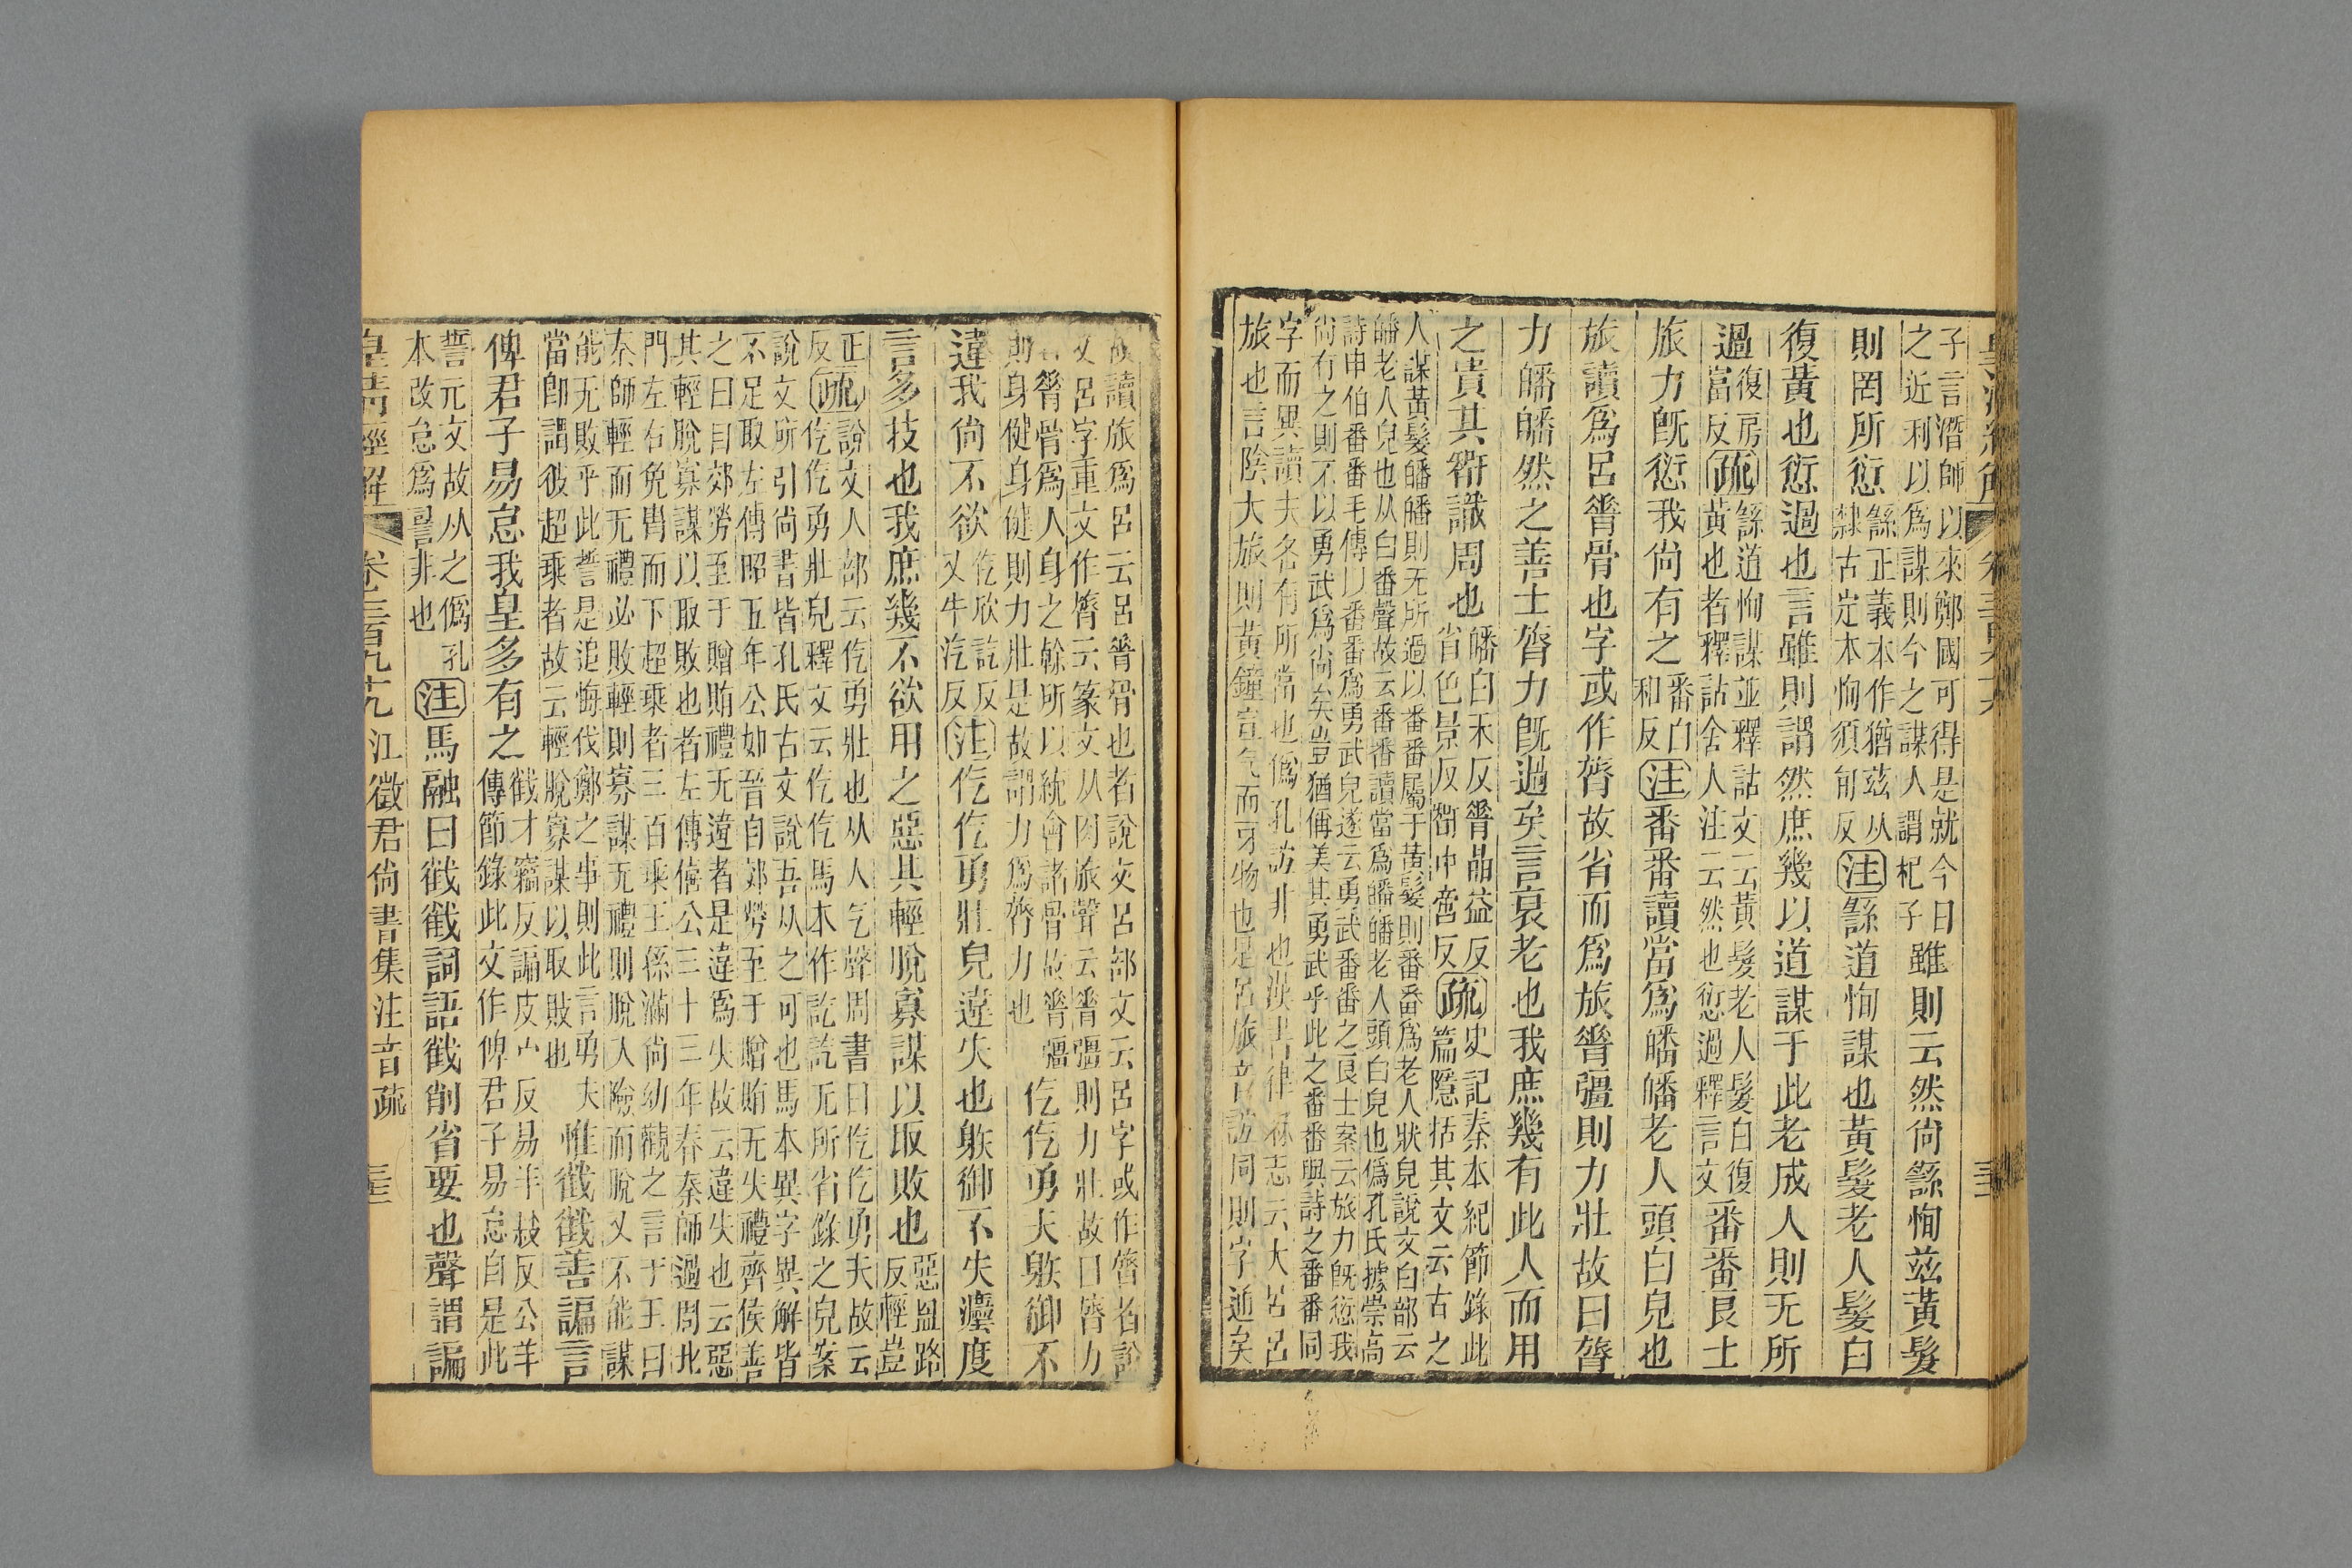 子言潛師以來鄭國可得是就今日
之近利以爲謀則今之謀人謂杞子
雖則云然尙繇恂茲黃髮
則罔所愆
繇正義本作猶茲从
隸古定本恂須甸反
注繇道恂謀也黃髮老人髮白
復黃也愆過也言雖則謂然庶幾以道謀于此老成人則无所
過
復房
富反
疏
繇道恂謀並釋詁文云黃髮老人髮白復
黃也者釋詁舍人注云然也愆過釋言文
番番良士
旅力旣愆我尙有之
番白
和反
注番番讀當爲皤皤老人頭白皃也
旅讀爲呂膂骨也字或作膂故省而爲旅膂彊則力壯故曰膂
力皤皤然之善士膂力旣過矣言衰老也我庶幾有此人而用
之貴其䛣識周也
皤白禾反膋晶益反
省色景反䛣中嗇反
疏
史記秦本紀節錄此
篇隱栝其文云古之
人謀黃髮皤皤則无所過以番番屬于黃髮則番番爲老人狀皃說文白部云
皤老人皃也从白番聲故云番番讀當爲皤皤老人頭白皃也僞孔氏據崇高
詩申伯番番毛傳以番番爲勇武皃遂云勇武番番之良士案云旅力旣愆我
尙有之則不以勇武爲尙矣豈猶偁美其勇武乎此之番番與詩之番番同
字而異讀夫各有所當也僞孔說非也漢書律秝志云大呂呂
旅也言陰大旅則黃鐘宣气而牙物也是呂旅音誼同則字通矣
故讀旅爲呂云呂膂骨也者說文呂部文云呂字或作膂者說
文呂字重文作膂云篆文从肉旅聲云膂彊則力壯故曰膂力
者膂骨爲人身之榦所以統會諸骨故膂彊
則身健身健則力壯是故謂力爲膂力也
仡仡勇夫躲御不
違我尙不欲
仡欣訖反
又牛汔反
注仡仡勇壯皃違失也躲御不失灋度
言多技也我庶幾不欲用之惡其輕脫寡謀以取敗也
惡盌路
反輕豈
正
反
疏
說文人部云仡勇壯也从人乞聲周書曰仡仡勇夫故云
仡仡勇壯皃釋文云仡仡馬本作訖訖无所省錄之皃案
說文所引尙書皆孔氏古文說吾从之可也馬本異字異解皆
不足取左傳昭五年公如晉自郊勞至于贈賄无失禮齊侯善
之曰自郊勞至于贈賄禮无違者是違爲失故云違失也云惡
其輕脫寡謀以取敗也者左傳僖公三十三年春秦師過周北
門左右免冑而下超乘者三百乘王孫滿尙幼觀之言于王曰
秦師輕而无禮必敗輕則寡謀无禮則脫入險而脫又不能謀
能无敗乎此誓是追悔伐鄭之事則此言勇夫
當卽謂彼超乘者故云輕脫寡謀以取敗也
惟㦸㦸善諞言
俾君子易怠我皇多有之
㦸才竊反諞皮㝉反易羊㪇反公羊
傳節錄此文作俾君子易怠自是此
誓元文故从之僞孔
本改怠爲辭非也
注馬融曰㦸㦸詞語㦸削省要也聲謂諞
皇淸經解 卷三百九十九 江徵君尙書集注音疏 三三